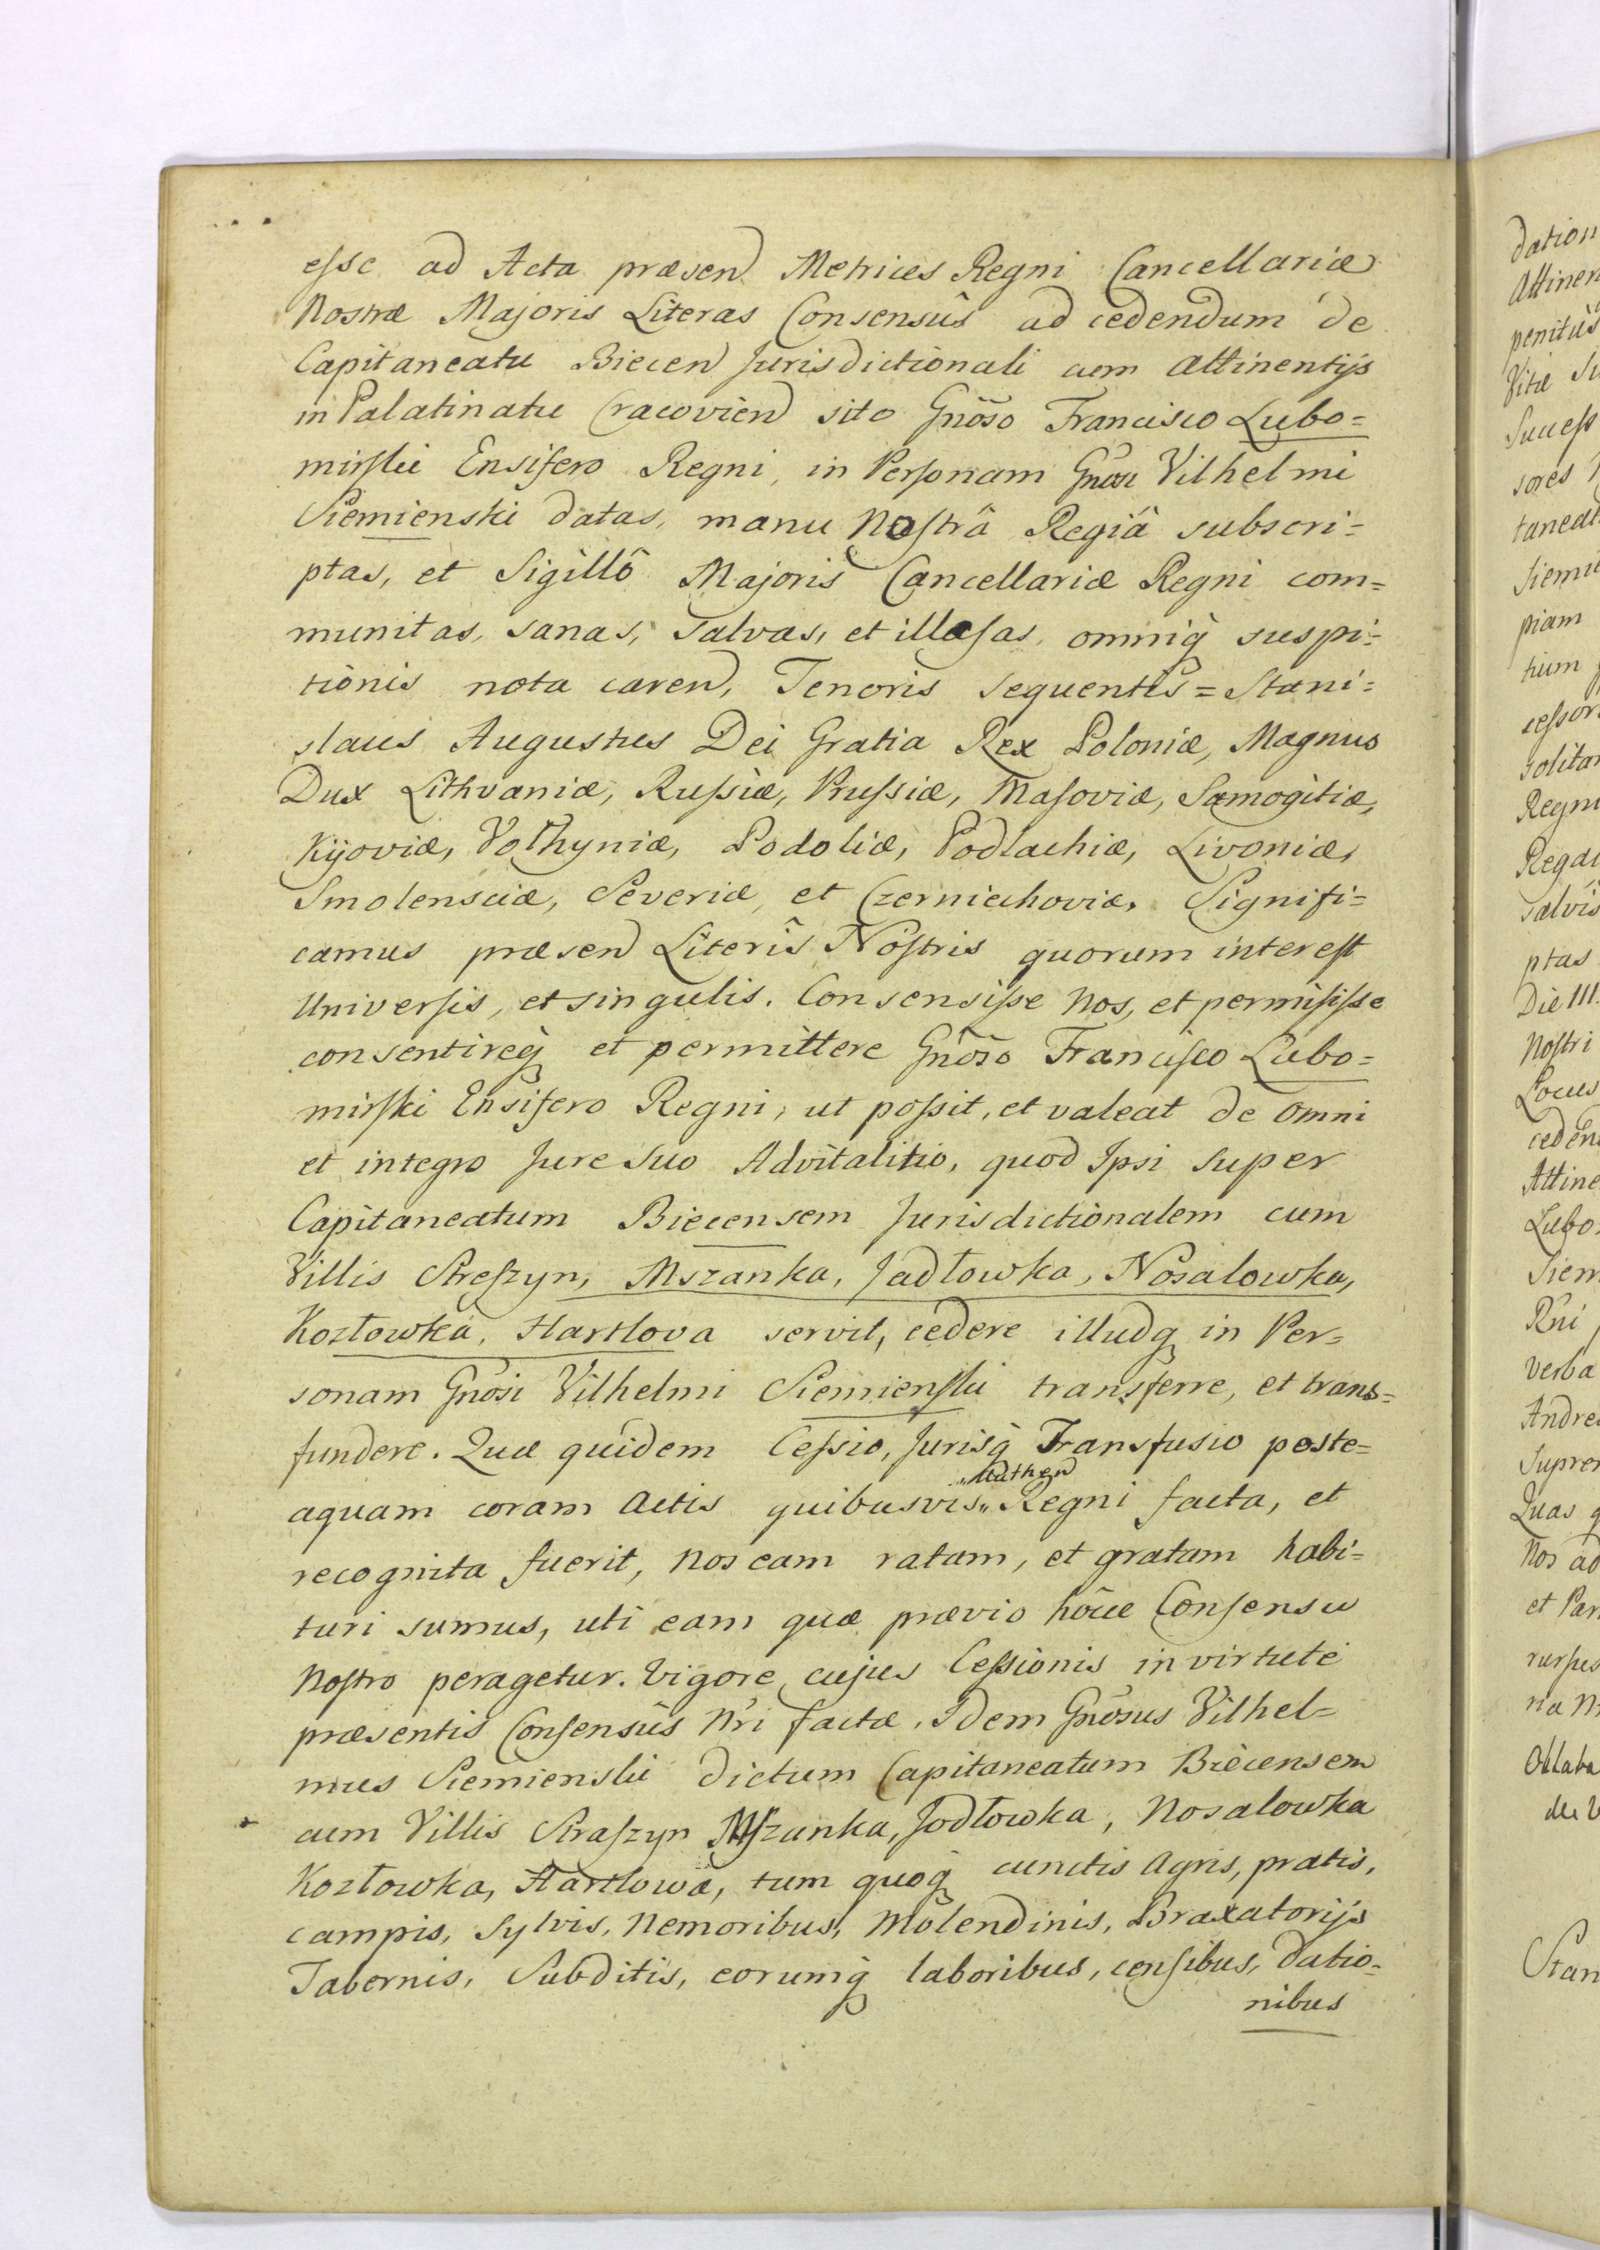 esse ad Acta præsen Metrices Regni Cancellariæ
Nostræ Majoris Literas Consensûs ad cedendum de
Capitaneatu Biecen Jurisdictionali cum Attinentijs
in Palatinatu Cracovien sito Gnoso Francisco Lubo=
mirski Ensifero Regni, in Personam Gnosi Vilhelmi
Siemienski datas, manu Nostrâ Regiâ subscri=
ptas, et Sigillô Majoris Cancellariæ Regni com=
munitas, sanas, salvas, et illæsas, omniq suspi=
tionis nota caren, Tenoris sequentis = Stani=
slaus Augustus Dei Gratia Rex Poloniæ, Magnus
Dux Lithvaniæ, Russiæ, Prussiæ, Masoviæ, Samogitiæ,
Kijoviæ, Volhyniæ, Podoliæ, Podlachiæ, Livoniæ,
Smolensciæ, Severiæ, et Czerniechoviæ. Signifi=
camus præsen Literis Nostris quorum interest
Universis, et singulis. Consensisse Nos, et permisisse
consentireq et permittere Gnoso Francisco Lubo=
mirski Ensifero Regni, ut possit, et valeat de omni
et integro Jure suo Advitalitio, quod Ipsi super
Capitaneatum Biecensem Jurisdictionalem cum
Villis Streszyn, Mszanka, Jadłowka, Nosalowka,
Kozłowka, Hartlova servit, cedere illudq in Per=
sonam Gnosi Vilhelmi Siemienski transferre, et trans=
fundere. Quæ quidem Cessio, Jurisq Transfusio poste=
"Authen
aquam coram Actis quibusvis" Regni facta, et
recognita fuerit, Nos eam ratam, et gratam habi=
turi sumus, uti eam quæ prævio hôce Consensu
Nostro peragetur. Vigore cujus Cessionis in virtute
præsentis Consensûs Nri factæ, Idem Gnosus Vilhel=
mus Siemienski dictum Capitaneatum Biecensem
cum Villis Straszyn Mszanka, Jodłowka, Nosalowka
Kozłowka, Hartlowa, tum quoq cunctis Agris, pratis,
campis, Sylvis, Nemoribus, Molendinis, Braxatorijs
Tabernis, Subditis, eorumq laboribus, censibus, datio=
nibus